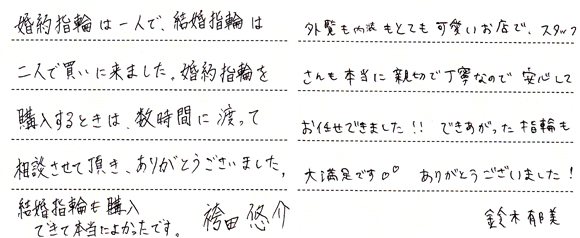 婚約指輪は一人で、結婚指輪は
二人で買いに来ました。婚約指輪を
購入するときは、数時間に渡って
相談させて頂き、ありがとうございました。
結婚指輪も購入
できて本当によかったです。
袴田 悠介
外観も内装もとても可愛いお店で、スタッフ
さんも本当に親切で丁寧なので安心して
お任せできました!! できあがった指輪も
大満足です♡♡ ありがとうございました!
鈴木 郁美